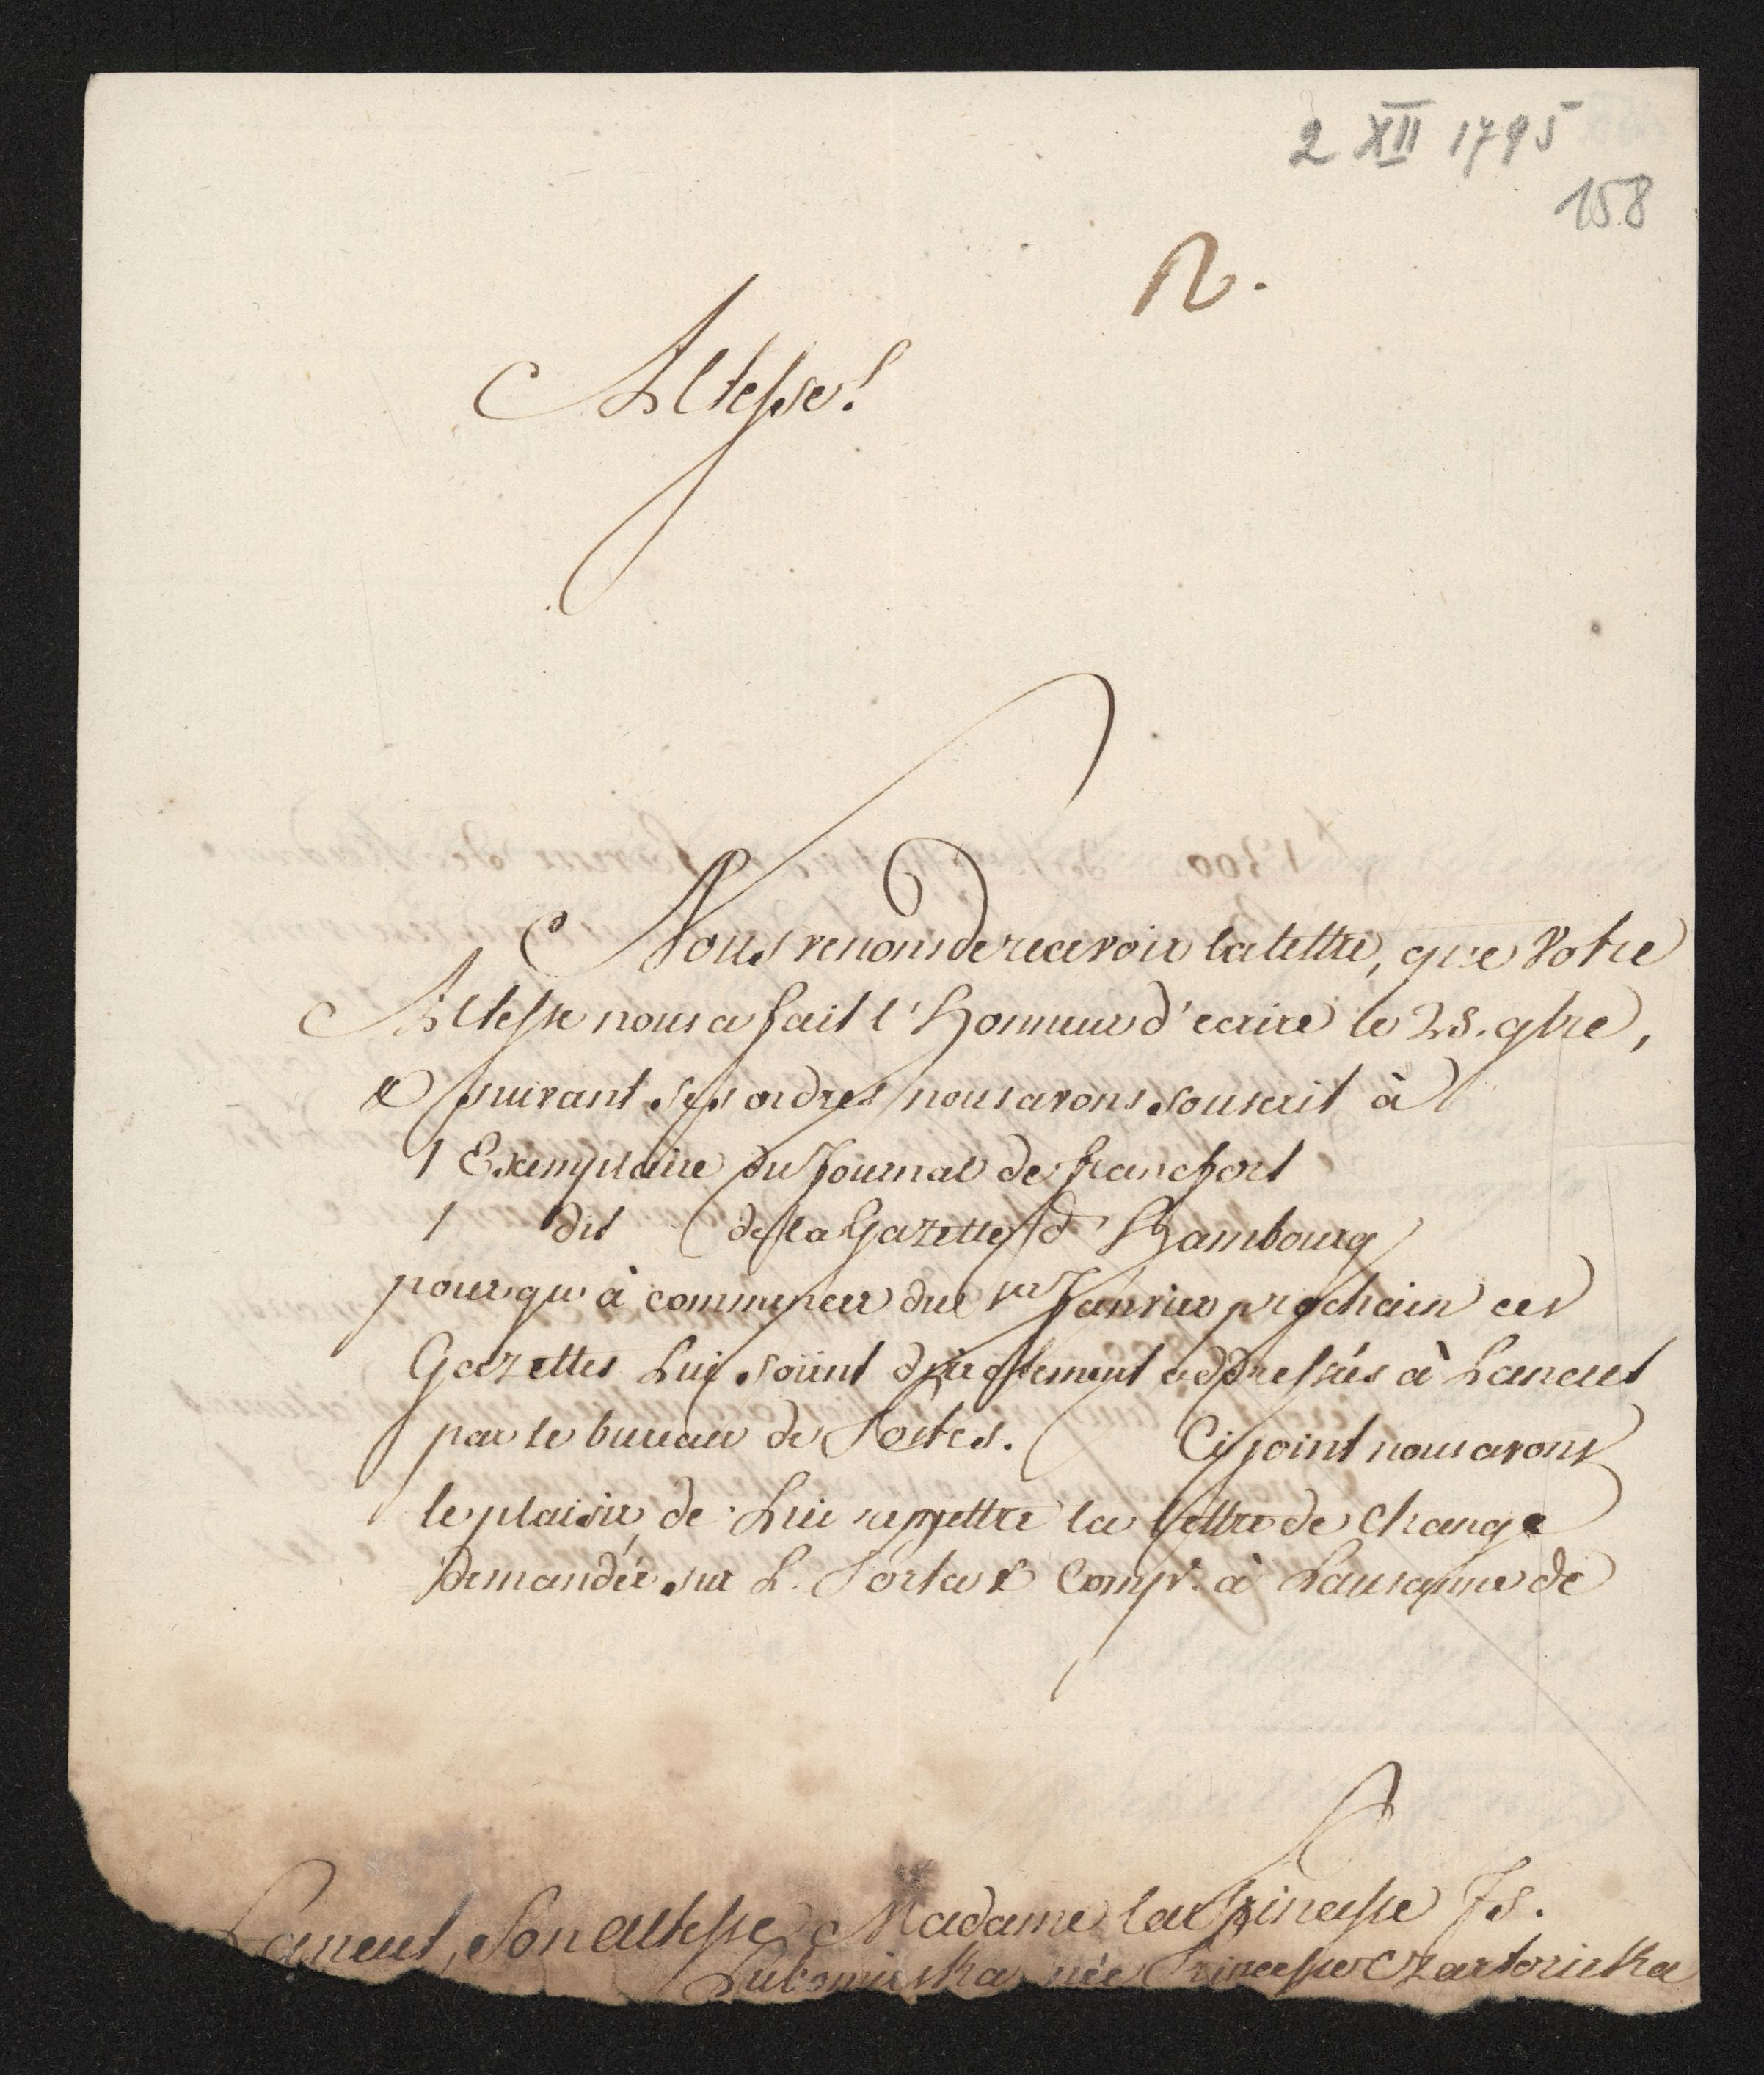 2 XII 1795
158
R.
Altesse!
Nous venons de recevoir la lettre, que Votre
Altesse nous a fait l'Honneur d'ecrire le 28. 9bre,
& suivant ses ordres nous avons souscrit à
1 Exemplaire du Journal de francfort
1 dit de la Gazette d'Hambourg
pour qu'à commencer du 1er Janvier prochain ces
Gazettes Lui soient directement addressées à Lancut
par le bureau de Postes. Ci joint nous avons
le plaisir de Lui remettre la lettre de Change
demandée sur L. Porta & Comp. à Lausanne de
Lancut, Son Altesse Madame la Princesse Is.
Lubomirska née Princesse Czartoriska